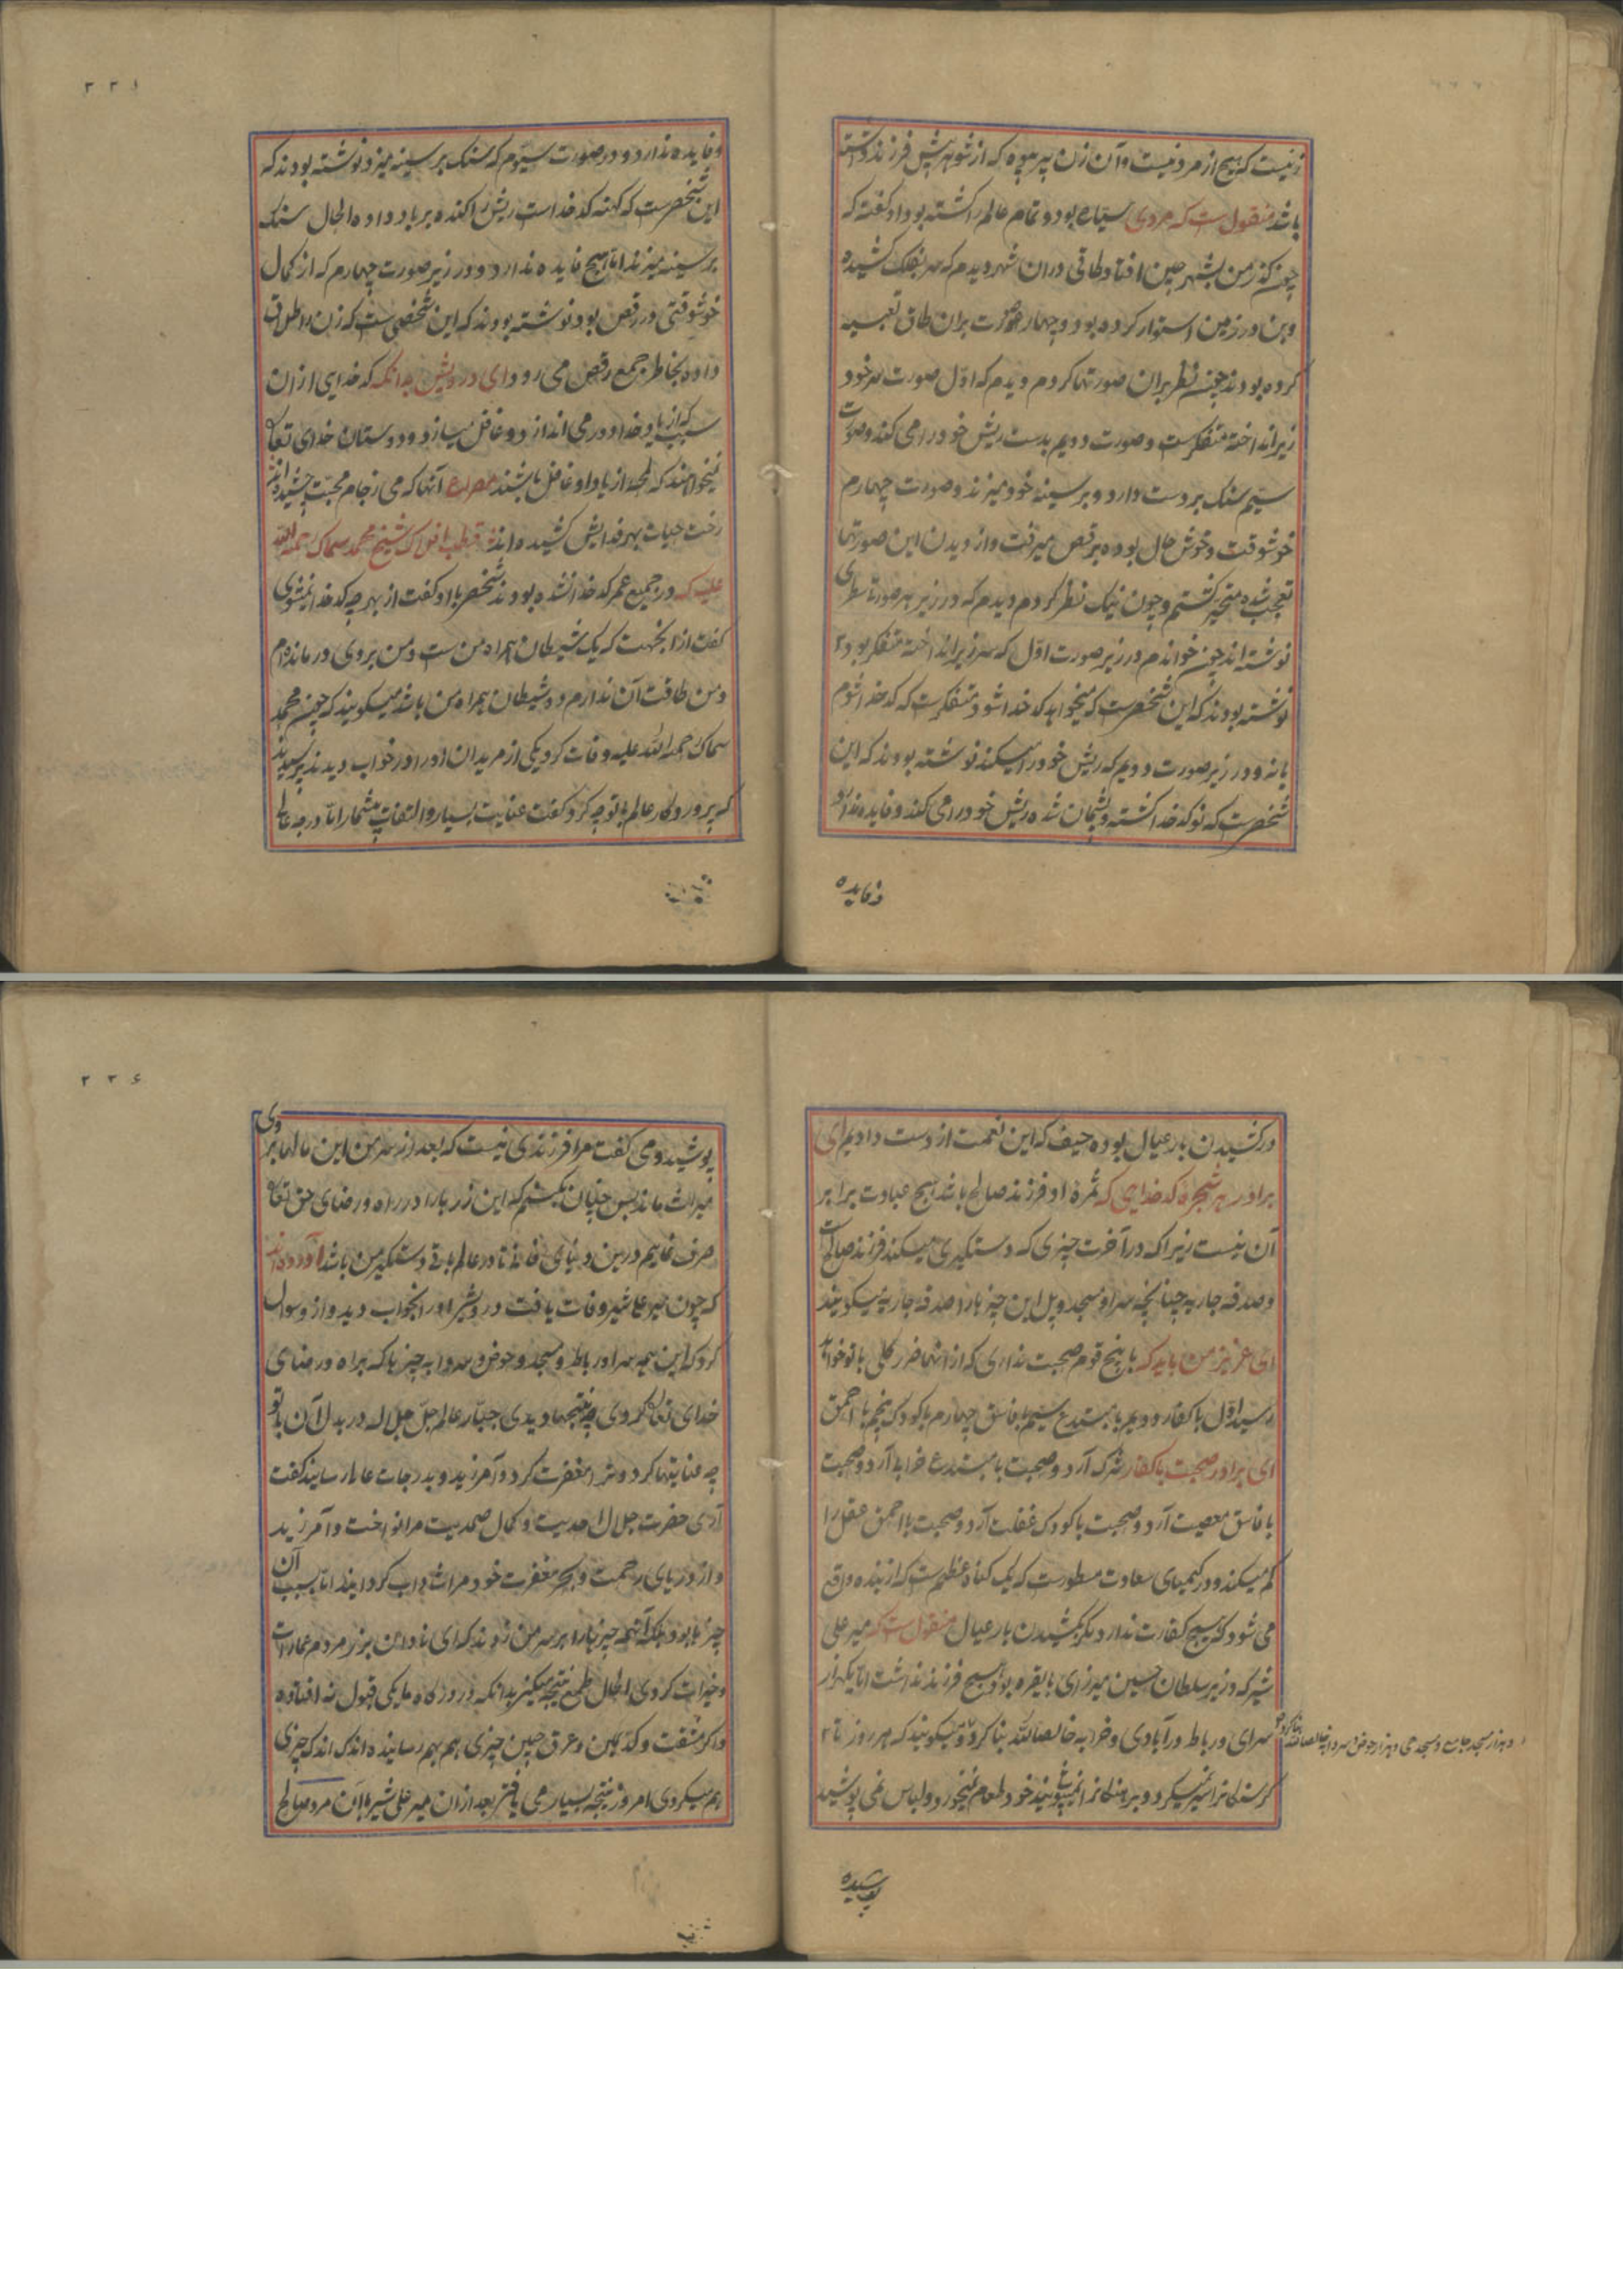 زنیست که هیچ از مرد نیست و آن زن پیر بیوه که از شوهرش فرزند داشته
باشد منقول است که مردی سیاره بود و تمام عالم را کشته بود او گفته که
چون گذر من بشهر چین افتاد طاقی در ان شهر دیدم که سر بفلک کشیده
وبن در زمین استوار کرده بود و چهار صورت بران طاق تعبیه
کرده بودند چون نظر بران صورتها کردم دیدم که اوّل صورت سر خود
زیر انداخته متفکرست و صورت دویم بدست ریش خود را می کند و صورت
سیّم سنک بر دست دارد و بر سینه خود میزند و صورت چهارم
خوشوقت و خوش حال بوده برقص میرفت و از دیدن این صورتها
تعجب شده متحیر کشتم و چون نیک نظر کردم دیدم که در زیر هر صورتا سطری
نوشته اند چون خواندم در زیر صورت اوّل که سر زیر انداخته متفکر بود
نوشته بودند که این شخصیست که میخواهد کدخدا شود متفکرست که کدخدا شوم
یا نه و در زیر صورت دویم که ریش خود را میکند نوشته بودند که این
شخصیست که نو کدخدا کشته و پشیمان شده ریش خود را می کند و فایده ندارد
و فایده
۲۲۱
و فایده ندارد و در صورت سیّوم که سنک بر سینه میزد نوشته بودند که
این شخصیست که کهنه کدخداست ریش را کنده بر باد داده الحال سنک
بر سینه میزند اما هیچ فایده ندارد و در زیر صورت چهارم که از کمال
خوشوقتی در رقص بود نوشته بودند که این شخصی ست که زن را طلاق
داده بخاطر جمع رقص می رود ای درویش بدانکه کدخدایی از ان
سبب که از یاد خدا دور می اندازد و غافل میسازد و دوستان خدای تعالی
نمیخواهند که لمحهٔ از یاد او غافل باشند مصراع آنها که می ز جام محبت چشیده اند
رخت حیات بهر فدایش کشیده اند قطب افلاک شیخ محمد سماک رحمة الله
علیه که در جمیع عمر کدخدا نشده بودند شخصی با او گفت از بهر چه کدخدا نمیشوی
گفت از انجهت که یک شیطان همراه من ست و من بر وی درمانده ام
و من طاقت آن ندارم دو شیطان همراه من باشد میگویند که چون محمد
سماک رحمة الله علیه وفات کرد یکی از مریدان او را در خواب دیدند پرسیدند
که پرورد کار عالم با تو چه کرد گفت عنایت بسیار و التفات بیشمار اما درجه عالی
در کشیدن بار عیال بوده حیف که این نعمت از دست دادیم ای
برادر هر شجرهٔ کدخدایی که ثمرهٔ او فرزند صالح باشد هیچ عبادت برابر
آن نیست زیرا که در آخرت چیزی که دستگیری میکند فرزند صالح است
و صدقه جاریه چنانچه سرا و مسجد و پل این چیزها را صدقه جاریه میگویند
ای عزیز من باید که با پنج قوم صحبت نداری که از انها ضرر کلی با تو خواهد
رسید اوّل با کفار دویم با مبتدع سیّم با فاسق چهارم با کودک پنجم با احمق
ای برادر صحبت با کفار شرک آرد و صحبت با مبتدع خرابی آرد و صحبت
با فاسق معصیت آرد و صحبت با کودک غفلت آرد و صحبت با احمق عقل را
کم میکند و در کیمیای سعادت مسطورست که یک کناه عظیم ست که از بنده واقع
می شود که هیچ کفارت ندارد مکر بکشیدن بار عیال منقول ست که میر علی
شیر که وزیر سلطان حسین میرزای بایقره بود هیچ فرزند نداشت اما یکهزار
سرای و رباط در آبادی و خرابه خالصا لله بنا کرد و میگویند که هر روز تا
کرسنکانرا سیر نمیکرد و برهنکانرا نمیپوشانید خود طعام نمیخورد و لباس نمی پوشید
و هزار مسجد جامع و مسجد حی و هزار حوض و سردابه خالصا لله بنا کرده
پوشیده
۲۲۶
پوشید و می گفت مرا فرزندی نیست که بعد از سر من این مالها بر وی
میراث ماند پس چنان بکنم که این زرها را در راه و رضای حق تعالی
صرف نمایم درین دنیای فانی تا در عالم باقی دستگیر من باشد آورده اند
که چون میر علیشیر وفات یافت درویشی او را بخواب دید و از و سوال
کرد که این همه سرا و رباط و مسجد و حوض و سردابه چیزها که براه و رضای
خدای تعالی کردی چه نتیجها دیدی جبّار عالم جلّ جلاله در بدل آن با تو
چه عنایتها کرد و ترا مغفرت کرد و آمرزید و بدرجات عالی رسانید گفت
آری حضرت جلال احدیت و کمال صمدیت مرا نواخت و آمرزید
و از دریای رحمت و بحر مغفرت خود مرا شاداب کردانید اما بسبب آن
چیزها بود بلکه آنهمه چیزها را بر سر من زدند که ای نادان بزر مردم عمارات
و خیرات کردی الحال طمع نتیجه میکنی بدانکه در درگاه ما یکی قبول نه افتاده
و اکر بمشقت و کدّ یمین و عرق جبین چیزی بهم رسانیده اندک اندک چیزی
هم میکردی امروز نتیجه بسیار می یافتی بعد از ان میر علی شیر با آن مرد صالح